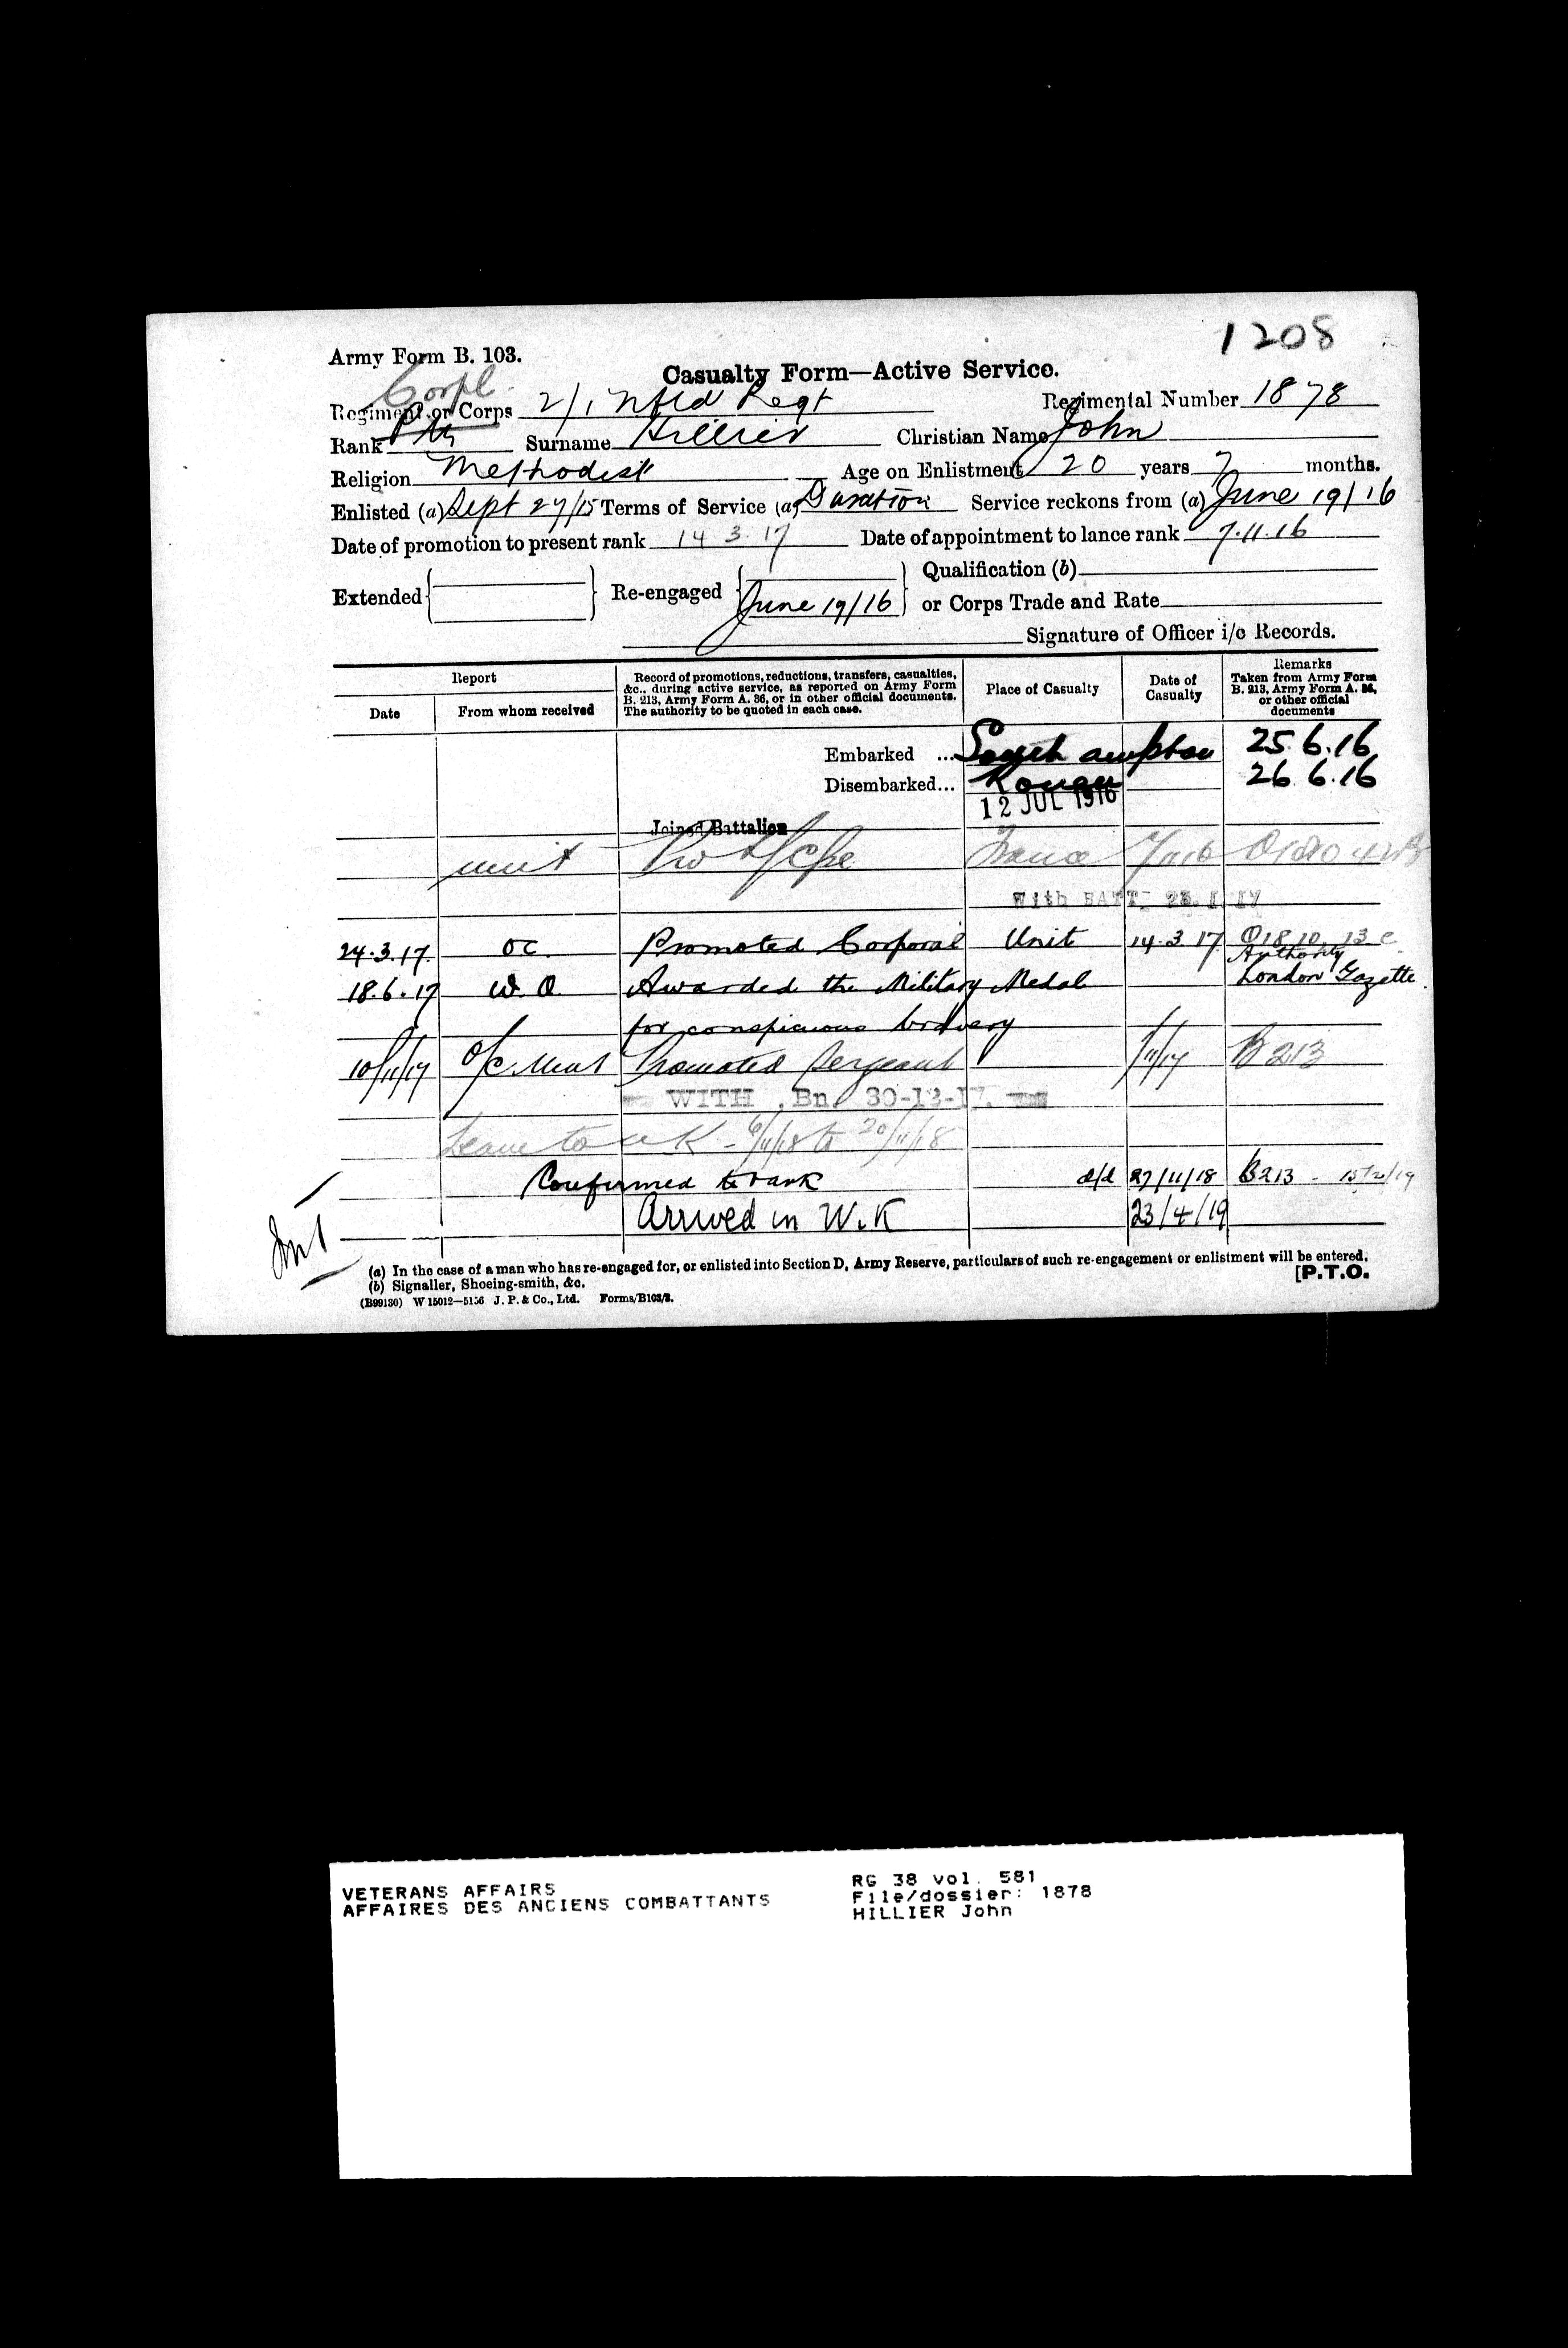 1208
Army Form B. 103.
Casualty Form—Active Service.
Corpl.
Regiment or Corps 2/1 Nfld Regt Regimental Number 1878
Rank Pte Surname Hillier Christian Name John
Religion Methodist Age on Enlistment 20 years 7 months.
Enlisted (a) Sept 27/15 Terms of Service (a) Duration Service reckons from (a) June 19/16
Date of promotion to present rank 14 3. 17 Date of appointment to lance rank 7.11.16
Extended Re-engaged June 19/16 Qualification (b)
or Corps Trade and Rate
Signature of Officer i/c Records.
Report
Date From whom received
Record of promotions, reductions, transfers, casualties, &c., during active service, as reported on Army Form B. 213, Army Form A. 36, or in other official documents. The authority to be quoted in each case.
Place of Casualty
Date of Casualty
Remarks Taken from Army Form B. 213, Army Form A. 36, or other official documents
Embarked ... Southampton 25.6.16
Disembarked... Rouen 26 6.16
Joined Battalion 12 JUL 1916
unit Pro L/Cpl France 7/11/16
With BATT.
24.3.17. OC. Promoted Corporal Unit 14.3 17. O1810 13 c
18.6.17 W.O. Awarded the Military Medal Authority London Gazette.
for conspicuous bravery
10/11/17 O/C. Unit Promoted Sergeant 1/11/17 B213
WITH . Bn. 30-12-17.
Leave to UK - 6/11/18 to 20/11/18
Confirmed to rank d/d 27/11/18 B213 - 15/2/19
Arrived in U.K 23/4/19
(a) In the case of a man who has re-engaged for, or enlisted into Section D, Army Reserve, particulars of such re-engagement or enlistment will be entered.
(b) Signaller, Shoeing-smith, &c.
[P.T.O.
(B99130) W 15012—5156 J. P. & Co., Ltd. Forms/B103/2.
VETERANS AFFAIRS
AFFAIRES DES ANCIENS COMBATTANTS
RG 38 vol. 581
File/dossier: 1878
HILLIER John